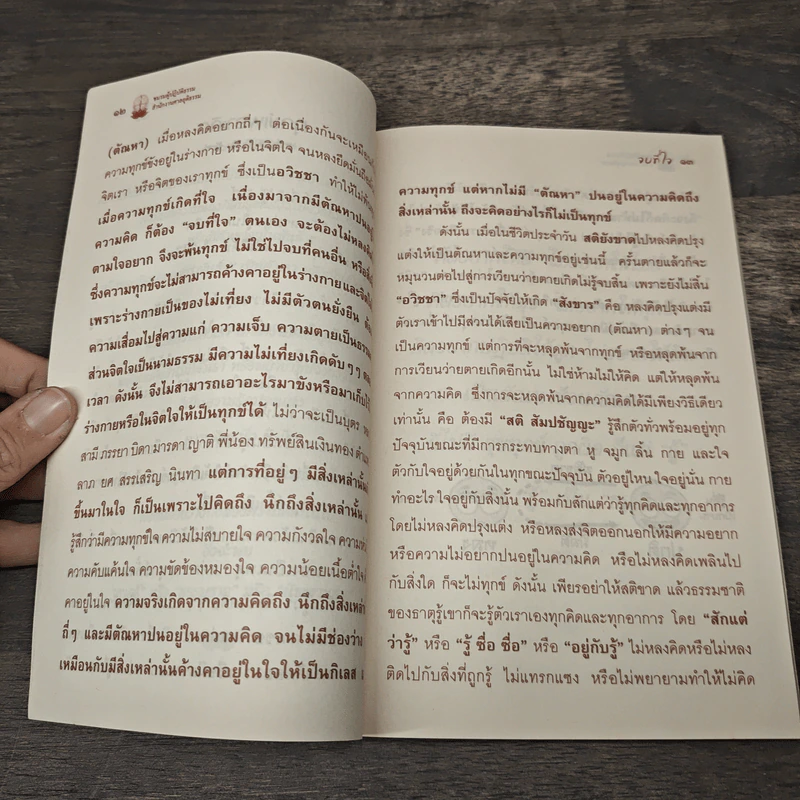 ๑๒
ชมรมผู้ปฏิบัติธรรม
สำนักงานศาลยุติธรรม
(ตัณหา) เมื่อหลงคิดอยากถี่ๆ ต่อเนื่องกันจะเหมือน
ความทุกข์ขังอยู่ในร่างกาย หรือในจิตใจ จนหลงยึดมั่น
จิตเรา หรือจิตของเราทุกข์ ซึ่งเป็นอวิชชา ทำให้
เมื่อความทุกข์เกิดที่ใจ เนื่องมาจากมีตัณหาปน
ความคิด ก็ต้อง “จบที่ใจ” ตนเอง จะต้องไม่หลง
ตามใจอยาก จึงจะพ้นทุกข์ ไม่ใช่ไปจบที่คนอื่น หรือ
ซึ่งความทุกข์จะไม่สามารถค้างคาอยู่ในร่างกายและจิตใจ
เพราะร่างกายเป็นของไม่เที่ยง ไม่มีตัวตนยั่งยืน
ความเสื่อมไปสู่ความแก่ ความเจ็บ ความตายเป็นธรรม
ส่วนจิตใจเป็นนามธรรม มีความไม่เที่ยงเกิดดับๆๆ
เวลา ดังนั้น จึงไม่สามารถเอาอะไรมาขังหรือมาเก็บไว้
ร่างกายหรือในจิตใจให้เป็นทุกข์ได้ ไม่ว่าจะเป็นบุตร
สามี ภรรยา บิดา มารดา ญาติ พี่น้อง ทรัพย์สินเงินทอง
ลาภ ยศ สรรเสริญ นินทา แต่การที่อยู่ๆ มีสิ่งเหล่านั้น
ขึ้นมาในใจ ก็เป็นเพราะไปคิดถึง นึกถึงสิ่งเหล่านั้น
รู้สึกว่ามีความทุกข์ใจ ความไม่สบายใจ ความกังวลใจ
ความคับแค้นใจ ความขัดข้องหมองใจ ความน้อยเนื้อต่ำใจ
คาอยู่ในใจ ความจริงเกิดจากความคิดถึง นึกถึงสิ่งเหล่านั้น
ถี่ๆ และมีตัณหาปนอยู่ในความคิด จนไม่มีช่องว่าง
เหมือนกับมีสิ่งเหล่านั้นค้างคาอยู่ในใจให้เป็นกิเลส
จบที่ใจ ๑๓
ความทุกข์ แต่หากไม่มี “ตัณหา” ปนอยู่ในความคิดถึง
สิ่งเหล่านั้น ถึงจะคิดอย่างไรก็ไม่เป็นทุกข์
ดังนั้น เมื่อในชีวิตประจำวัน สติยังขาดไปหลงคิดปรุง
แต่งให้เป็นตัณหาและความทุกข์อยู่เช่นนี้ ครั้นตายแล้วก็จะ
หมุนวนต่อไปสู่การเวียนว่ายตายเกิดไม่รู้จบสิ้น เพราะยังไม่สิ้น
“อวิชชา” ซึ่งเป็นปัจจัยให้เกิด “สังขาร” คือ หลงคิดปรุงแต่งมี
ตัวเราเข้าไปมีส่วนได้เสียเป็นความอยาก (ตัณหา) ต่างๆ จน
เป็นความทุกข์ แต่การที่จะหลุดพ้นจากทุกข์ หรือหลุดพ้นจาก
การเวียนว่ายตายเกิดอีกนั้น ไม่ใช่ห้ามไม่ให้คิด แต่ให้หลุดพ้น
จากความคิด ซึ่งการจะหลุดพ้นจากความคิดได้มีเพียงวิธีเดียว
เท่านั้น คือ ต้องมี “สติ สัมปชัญญะ” รู้สึกตัวทั่วพร้อมอยู่ทุก
ปัจจุบันขณะที่มีการกระทบทางตา หู จมูก ลิ้น กาย และใจ
ตัวกับใจอยู่ด้วยกันในทุกขณะปัจจุบัน ตัวอยู่ไหน ใจอยู่นั่น กาย
ทำอะไร ใจอยู่กับสิ่งนั้น พร้อมกับสักแต่ว่ารู้ทุกคิดและทุกอาการ
โดยไม่หลงคิดปรุงแต่ง หรือหลงส่งจิตออกนอกให้มีความอยาก
หรือความไม่อยากปนอยู่ในความคิด หรือไม่หลงคิดเพลินไป
กับสิ่งใด ก็จะไม่ทุกข์ ดังนั้น เพียรอย่าให้สติขาด แล้วธรรมชาติ
ของธาตุรู้เขาก็จะรู้ตัวเราเองทุกคิดและทุกอาการ โดย “สักแต่
ว่ารู้” หรือ “รู้ ซื่อ ซื่อ” หรือ “อยู่กับรู้” ไม่หลงคิดหรือไม่หลง
ติดไปกับสิ่งที่ถูกรู้ ไม่แทรกแซง หรือไม่พยายามทำให้ไม่คิด